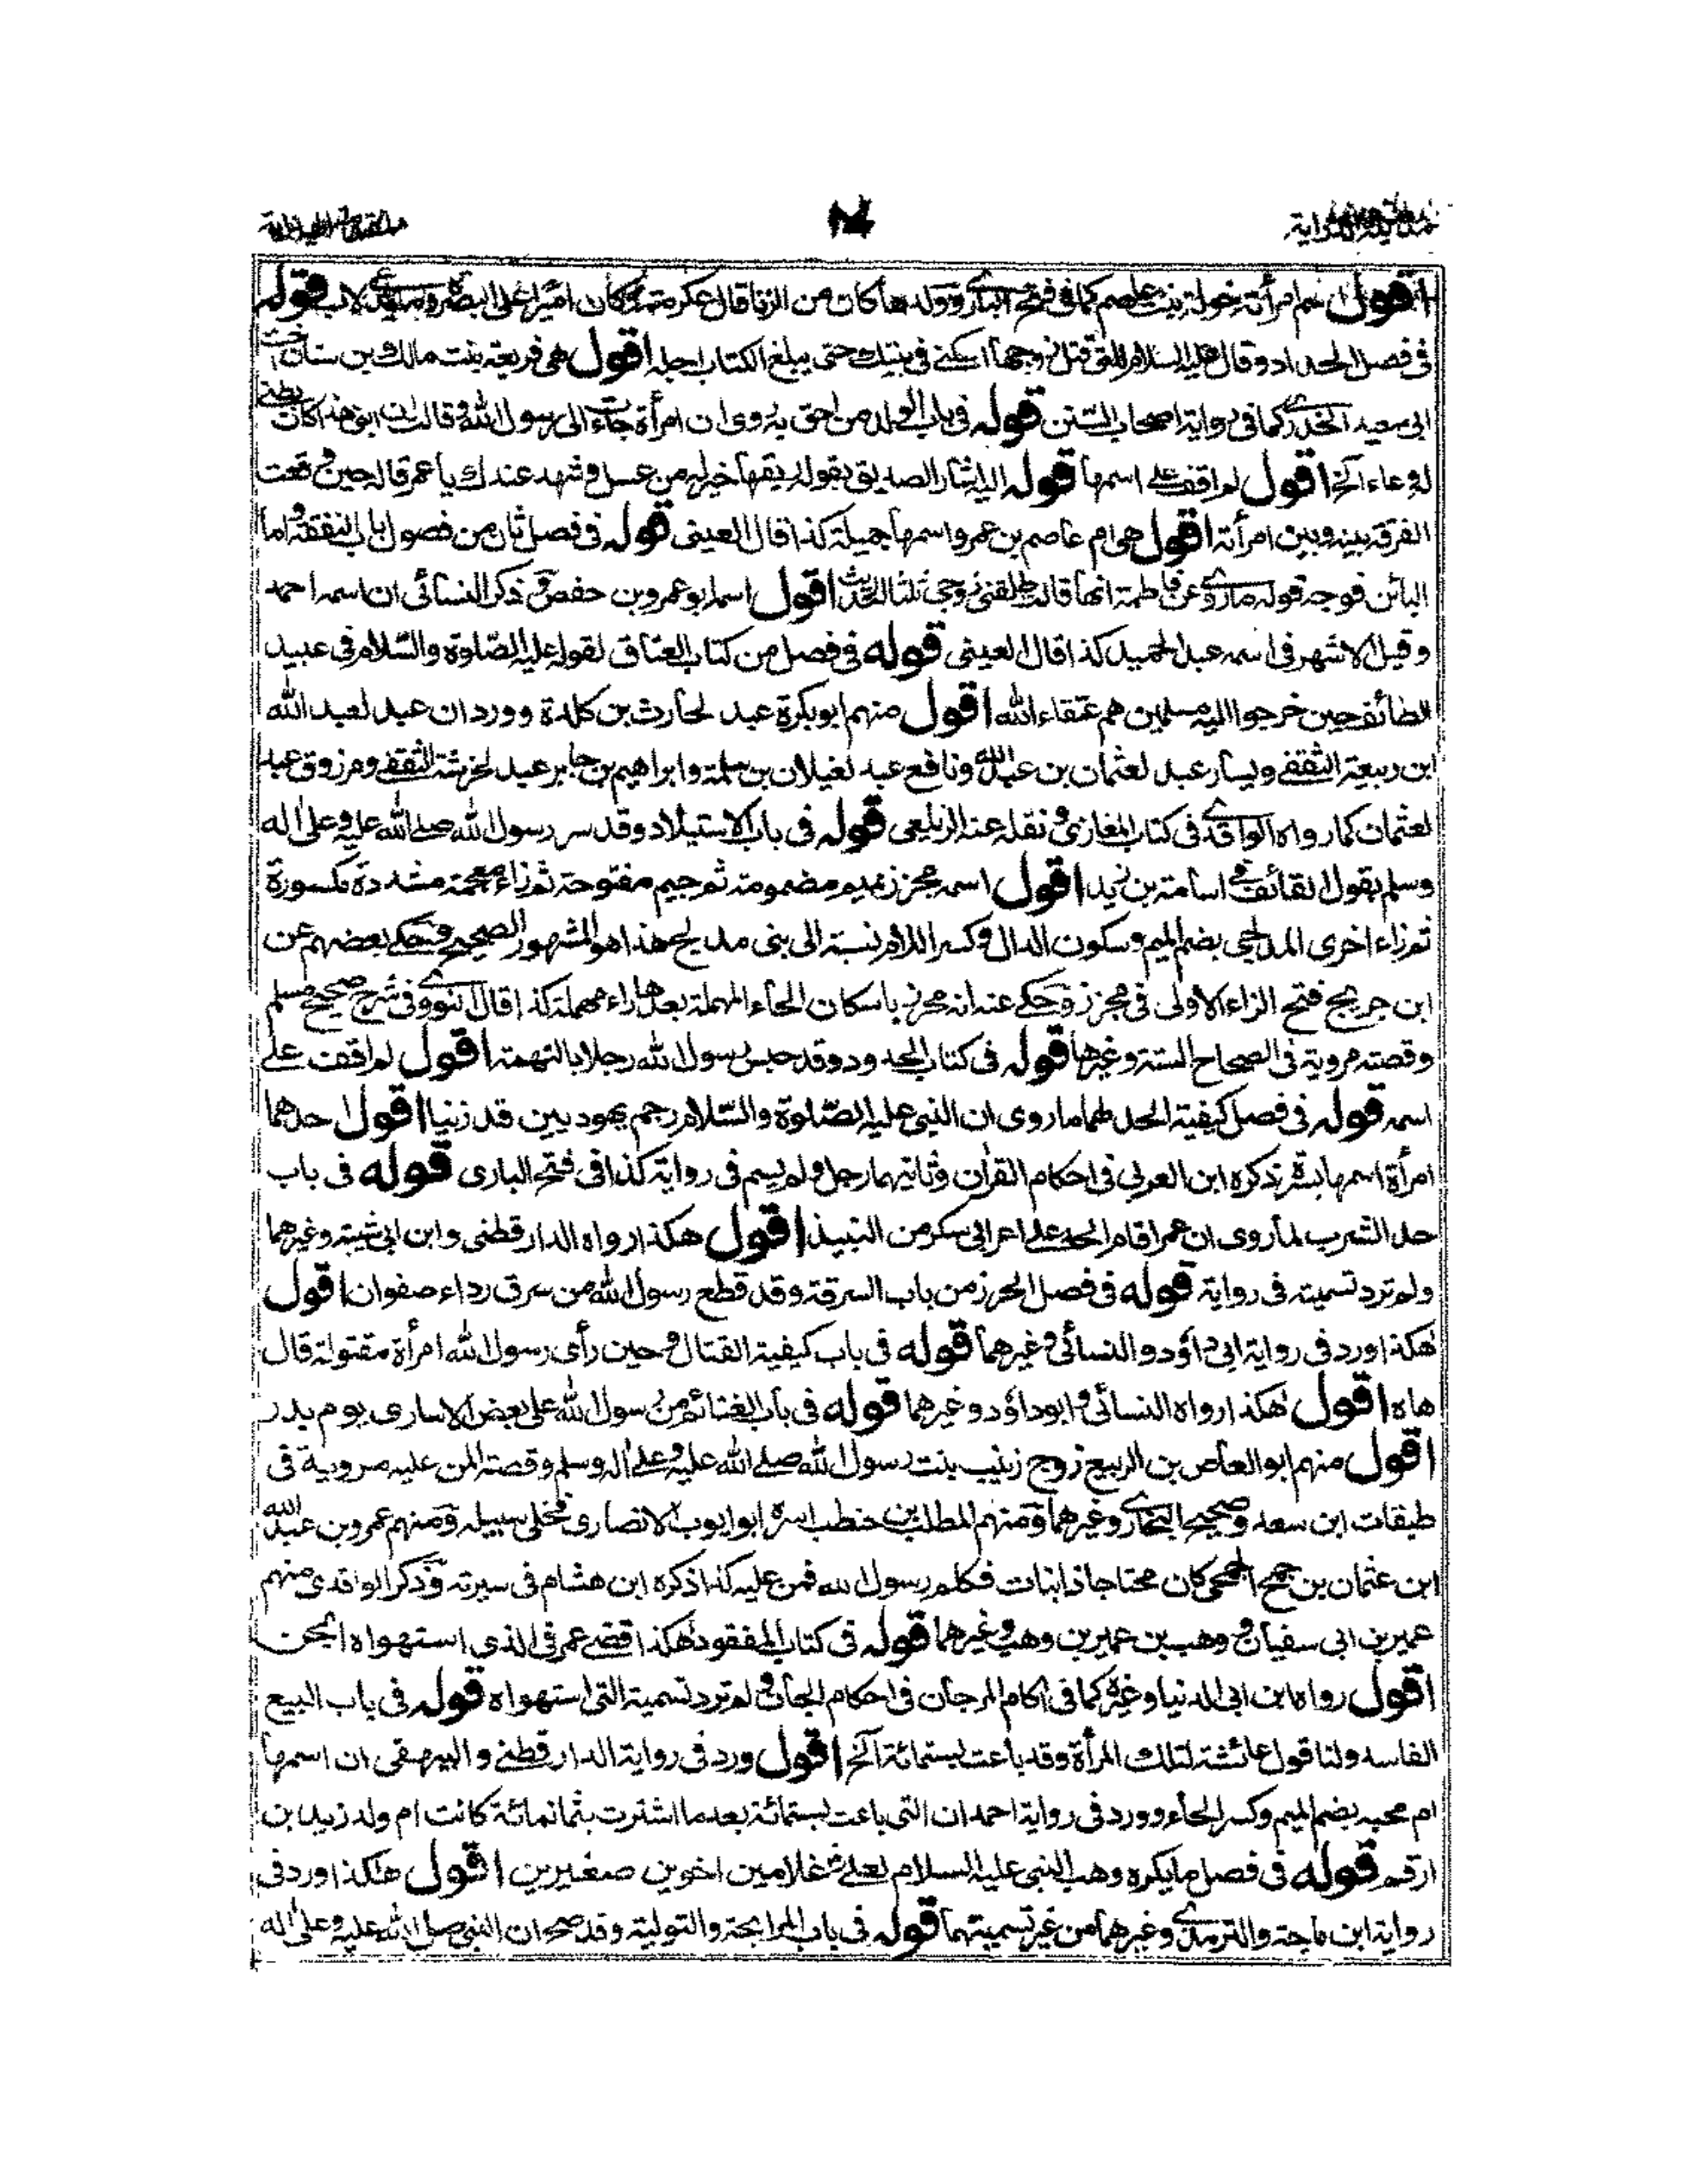 اقول اسم امرأته خولة بنت عاصم كما فى فتح البارى وولدها كان من الزنا قال عكرمة كان اميرا على البصرة وما يدعى لاب قوله
فى فصل الحداد وقال عليه السلام للتى قتل زوجها اسكنى فى بيتك حتى يبلغ الكتاب اجله اقول هى فريعة بنت مالك بن سنان اخت
ابى سعيد الخدرى كما فى رواية اصحاب السنن قوله فى باب الولد من احق به روى ان امرأة جاءت الى رسول الله وقالت ان ابنى هذا كان بطنى
له وعاء الخ اقول لم اقف على اسمها قوله اليه اشار الصديق بقوله ريقها خير له من عسل وشهد عندك يا عمر قاله حين وقعت
الفرقة بينه وبين امرأته اقول هى ام عاصم بن عمر واسمها جميلة كذا قال العينى قوله فى فصل ثان من فصول باب النفقة واما
البائن فوجه قوله ما روى عن فاطمة انها قالت طلقنى زوجى ثلثا الحديث اقول اسمه ابو عمرو بن حفص وذكر النسائى ان اسمه احمد
وقيل الاشهر فى اسمه عبد الحميد كذا قال العينى قوله فى فصل من كتاب العتاق لقوله عليه الصلوة والسلام فى عبيد
الطائف حين خرجوا اليه مسلمين هم عتقاء الله اقول منهم ابو بكرة عبد لحارث بن كلدة ووردان عبد لعبد الله
ابن ربيعة الثقفى ويسار عبد لعثمان بن عبد الله ونافع عبد لغيلان بن سلمة وابراهيم بن جابر عبد لخرشة الثقفى ومرزوق عبد
لعثمان كما رواه الواقدى فى كتاب المغازى ونقله عنه الزيلعى قوله فى باب الاستيلاد وقد سر رسول الله صلى الله عليه وعلى اله
وسلم بقول القائف فى اسامة بن زيد اقول اسمه مجزز بميم مضمومة ثم جيم مفتوحة ثم زاء معجمة مشددة مكسورة
ثم زاء اخرى المدلجى بضم الميم وسكون الدال وكسر اللام نسبة الى بنى مدلج هذا هو المشهور الصحيح وحكى بعضهم عن
ابن جريج فتح الزاء الاولى فى مجزز وحكى عنه انه محرز باسكان الحاء المهملة بعدها راء مهملة كذا قال النووى فى شرح صحيح مسلم
وقصته مروية فى الصحاح الستة وغيرها قوله فى كتاب الحدود وقد حبس رسول الله رجلا بالتهمة اقول لم اقف على
اسمه قوله فى فصل كيفية الحد لهما ما روى ان النبى عليه الصلوة والسلام رجم يهوديين قد زنيا اقول احدهما
امرأة اسمها بسرة ذكره ابن العربى فى احكام القرأن وثانيهما رجل ولم يسم فى رواية كذا فى فتح البارى قوله فى باب
حد الشرب لما روى ان عمر اقام الحد على اعرابى سكر من النبيذ اقول هكذا رواه الدارقطنى وابن ابى شيبة وغيرهما
ولم ترد تسميته فى رواية قوله فى فصل الحرز من باب السرقة وقد قطع رسول الله من سرق رداء صفوان اقول
هكذا ورد فى رواية ابى داؤد والنسائى وغيرهما قوله فى باب كيفية القتال وحين رأى رسول الله امرأة مقتولة قال
هاه اقول هكذا رواه النسائى وابو داؤد وغيرهما قوله فى باب الغنائم من رسول الله على بعض الاسارى يوم بدر
اقول منهم ابو العاص بن الربيع زوج زينب بنت رسول الله صلى الله عليه وعلى اله وسلم وقصة المن عليه مروية فى
طبقات ابن سعد وصحيح البخارى وغيرهما ومنهم المطلب بن حنطب اسره ابو ايوب الانصارى فخلى سبيله ومنهم عمرو بن عبد الله
ابن عثمان بن جمح الجمحى كان محتاجا ذا بنات فكلم رسول الله فمن عليه كذا ذكره ابن هشام فى سيرته وذكر الواقدى منهم
عمير بن ابى سفيان و وهب بن عمير بن وهب وغيرهما قوله فى كتاب المفقود هكذا قضى عمر فى الذى استهواه الجن
اقول رواه ابن ابى الدنيا وغيره كما فى اكام المرجان فى احكام الجان ولم ترد تسمية التى استهواه قوله فى باب البيع
الفاسد ولنا قول عائشة لتلك المرأة وقد باعت بستمائة الخ اقول ورد فى رواية الدارقطنى والبيهقى ان اسمها
ام محبه بضم الميم وكسر الحاء وورد فى رواية احمد ان التى باعت بستمائة بعد ما اشترت بثمانمائة كانت ام ولد زيد بن
ارقم قوله فى فصل ما يكره وهب النبى عليه السلام لعلى غلامين اخوين صغيرين اقول هكذا ورد فى
رواية ابن ماجة والترمذى وغيرهما من غير تسميتهما قوله فى باب المرابحة والتولية وقد صح ان النبى صلى الله عليه وعلى اله